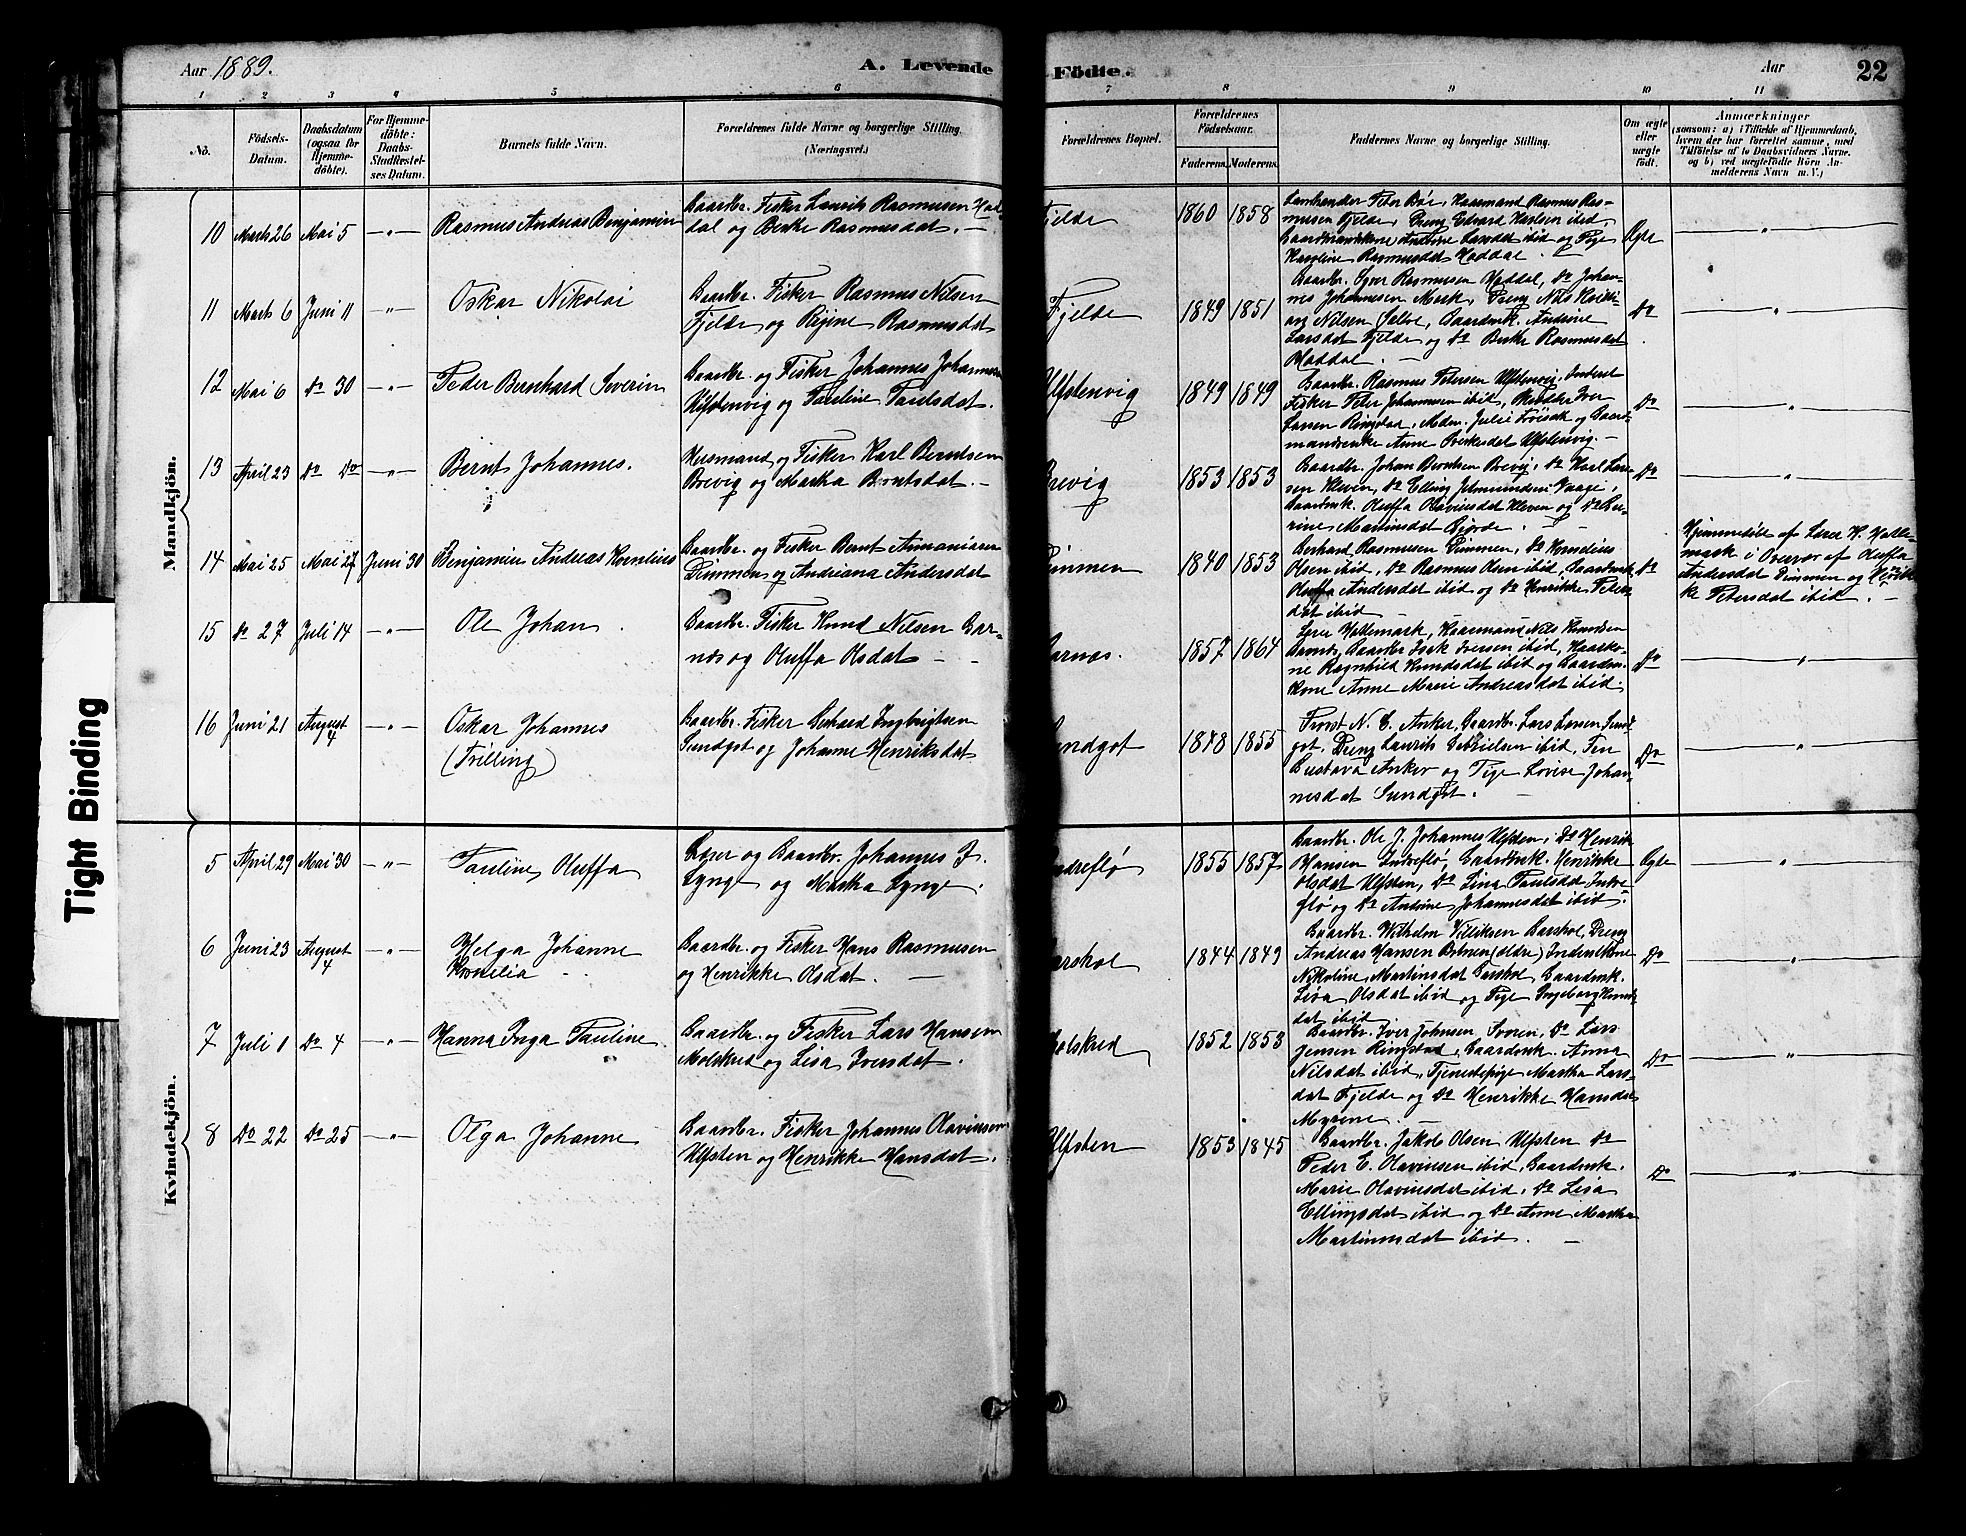 Aar 1889.
A. Levende
Födte.
Aar
22
1 2 3 4 5 6 7 8 9 10 11
No.
Födsels-
Datum.
Daabsdatum
(ogsaa for
Hjemme-
döbte).
For Hjemme-
döbte:
Daabs-
Stadfæstel-
ses Datum.
Barnets fulde Navn.
Forældrenes fulde Navne og borgerlige Stilling.
(Næringsvei.)
Forældrenes Bopæl.
Forældrenes
Födselsaar.
Faderens. Moderens.
Faddernes Navne og borgerlige Stilling.
Om ægte
eller
uægte
födt.
Anmærkninger
(saasom: a) i Tilfælde af Hjemmedaab,
hvem der har forrettet samme, med
Tilföielse af to Daabsvidners Navne.
og b) ved uægtefödte Börn An-
melderens Navn m. V.)
Mandkjön.
10 Marts 26 Mai 5 —"— Rasmus Andreas Benjamin
Gaardbr. Fisker Laurits Rasmusen Had-
dal og Berthe Rasmusdat. —
Fjelde 1860 1858
Landhandler Peter Bøe, Kaarmand Rasmus Ras-
musen Fjelde, Dreng Edvard Karlsen ibid
Gaardmandskone Andrine Larsdat ibid og Pige
Karoline Rasmusdat Haddal.
Ægte —"—
11 Marts 6 Juni 11 —"— Oskar Nikolai
Gaardbr. Fisker Rasmus Nilsen
Fjelde og Regine Rasmusdat
Fjelde 1849 1851
Gaardbr. Iver Rasmusen Haddal, Do Johan-
nes Johannesen Mork, Dreng Nils Kristi-
an Nilsen Fjelde, Gaardmk. Andrine
Larsdat Fjelde og Do Berthe Rasmusdat
Haddal. —
Do —"—
12 Mai 6 Do 30 —"— Peder Bernhard Severin
Gaardbr. og Fisker Johannes Johannesen
Ulfstenvig og Pauline Paulsdat.
Ulfstenvig 1849 1849
Gaardbr. Rasmus Petersen Ulfstenvig, Inderst
Fisker Peter Johannesen ibid, Iver
Larsen Ringstad, Mdm. Julie og Gaard-
mandsenke Anne Ulfstenvig. —
Do —"—
13 April 23 Do Do —"— Bernt Johannes.
Husmand og Fisker Karl Berntsen
Brevig og Martha Berntsdat. —
Brevig 1853 1853
Gaardbr. Johan Berntsen Brevig, Do Karl Lar-
sen Kleven, Do Elling Vaage,
Gaardmk. Oluffa Olavinsdat Kleven og Do
Martinsdat Gjørde. —
Do —"—
14 Mai 25 Mai 27 Juni 30 Benjamin Andreas Kornelius
Gaardbr. og Fisker Bernt Ananiasen
Dimmen og Andriana Andersdat
Dimmen 1840 1853
Gerhard Rasmusen Dimmen, Do Kornelius
Olsen ibid, Do Rasmus Olsen ibid, Gaardmk.
Oluffa Andersdat ibid og Do Henrikke Peters-
dat ibid —
Do
Hjemmedøbt af Lærer K. Halle-
mark i Overvær af Oluffa
Andersdat Dimmen og Henrik-
ke Petersdat ibid. —
15 Do 27 Juli 14 —"— Ole Johan.
Gaardbr. Fisker Knud Nilsen Gar-
næs og Oluffa Olsdat —
Garnæs. 1857 1864
Lærer Hallemark, Kaarmand Nils Knudsen
Garnæs, Gaardbr Isak Iversen ibid, Kaarko-
ne Ragnhild Knudsdat ibid og Gaardm.
kone Anne Marie Andreasdat ibid.
Do —"—
16 Juni 21 August 4 —"— Oskar Johannes
(Trilling)
Gaardbr. Fisker Gerhard Ingbrigtsen
Sundgot og Johanne Henriksdat
Sundgot 1848 1855
Provst N. E. Anker, Gaardbr. Lars Larsen Sund-
got, Dreng Laurits Gabrielsen ibid, Frn
Gustava Anker og Pige Lovise Johan-
nesdat Sundgot. —
Do —"—
Kvindekjön.
5 April 29 Mai 30 —"— Pauline Oluffa
Lærer og Gaardbr. Johannes J.
Lynge og Martha Lynge.
Indreflø 1855 1857
Gaardbr. Ole J. Johannes Ulfsten, Do Henrik
Hansen Indreflø, Gaardmk. Henrikke
Olsdat Ulfsten, Do Lina Paulsdat Indre-
flø og Do Andrine Johannesdat ibid.
Ægte —"—
6 Juni 23 August 4 —"— Helga Johanne
Kornelia —
Gaardbr. og Fisker Hans Rasmusen
og Henrikke Olsdat. —
Garshol 1844 1849
Gaardbr. Wilhelm Villiksen Garshol, Dreng
Andreas Hansen Botnen (ældre) Inderstkone
Nikoline Martinsdat Garshol, Gaardmk.
Lisa Olsdat ibid og Pige Ingeborg Knuds-
dat ibid
Do —"—
7 Juli 1 Do 4 —"— Hanna Inga Pauline.
Gaardbr. og Fisker Lars Hansen
Molskred og Lisa Iversdat.
Molskred 1852 1853
Gaardbr. Iver Johnsen, Svoren, Do Lars
Jensen Ringstad, Gaardmk. Anna
Nilsdat ibid, Tjenestepige Martha Lars-
dat Fjelde og Do Henrikke Hansdat
Myrene. —
Do —"—
8 Do 22 Do 25 —"— Olga Johanne
Gaardbr. Fisker Johannes Olavinsen
Ulfsten og Henrikke Hansdat.
Ulfsten 1853 1845
Gaardbr. Jakob Olsen Ulfsten Do
Peder E. Olavinsen ibid, Gaardmk.
Marie Olavinsdat ibid, Do Lisa
Ellingsdat ibid og Do Anne Martha
Martinusdat ibid. —
Do —"—
Tight Binding